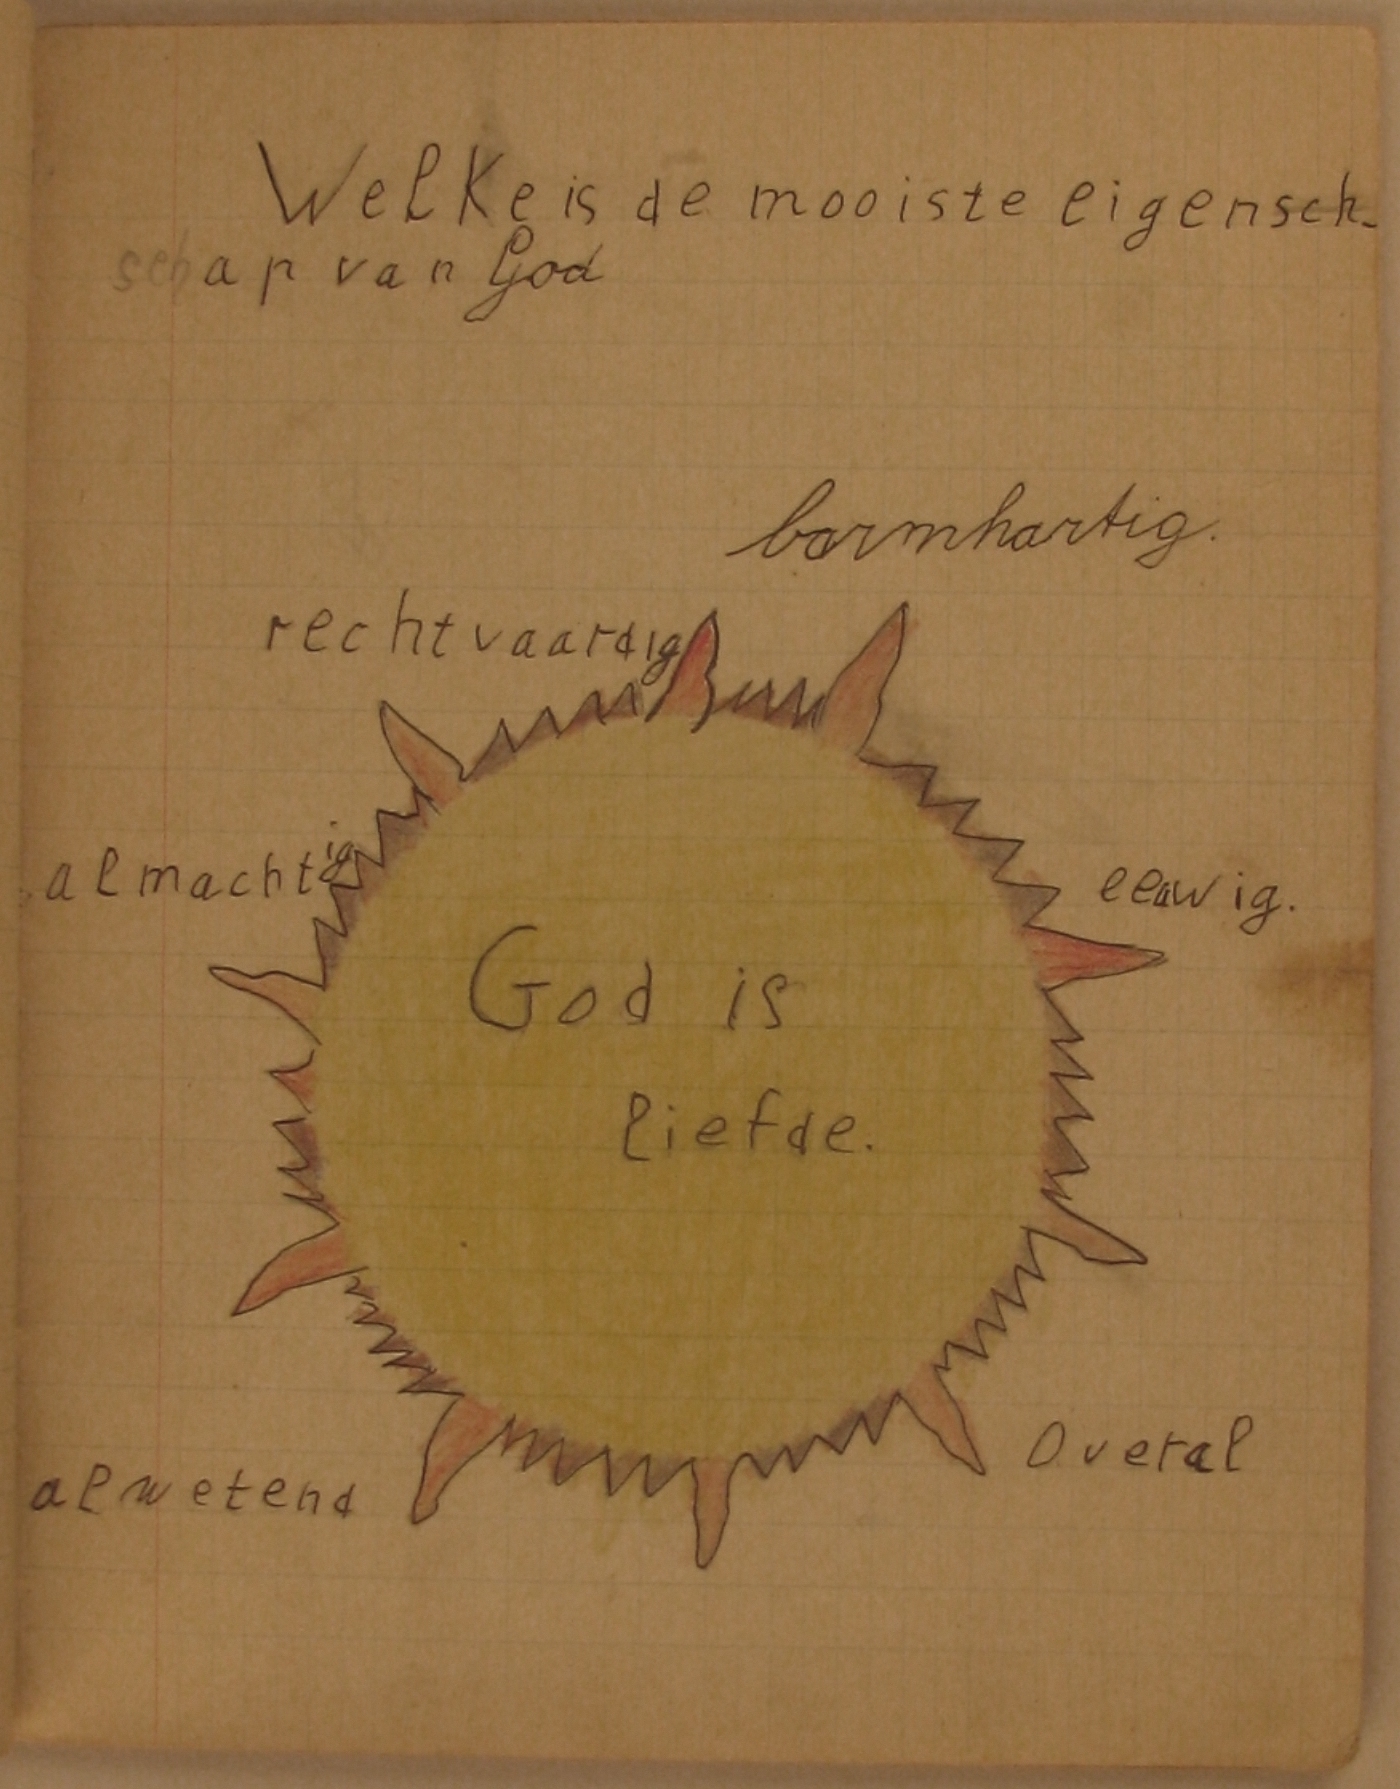 Welke is de mooiste eigensch-
schap van God
barmhartig.
rechtvaardig
almachtig
eeuwig.
God is
liefde.
Overal
alwetend